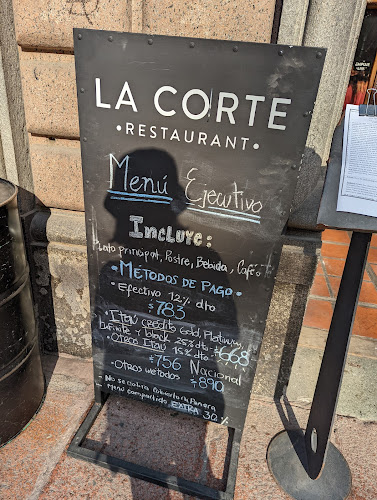 LA CORTE
• RESTAURANT •
Menú Ejecutivo
Incluye:
Plato principal, Postre, Bebida, Café
• METODOS DE PAGO •
• Efectivo 12% dto
$783
• Itaú crédito Gold, Platinum,
Infinite y black 25% dto $668
• Otros Itaú 15% dto
$756 Nacional
• Otros metodos $890
• No se cobra Cubierto ni Panera
Menu compartido EXTRA 30%